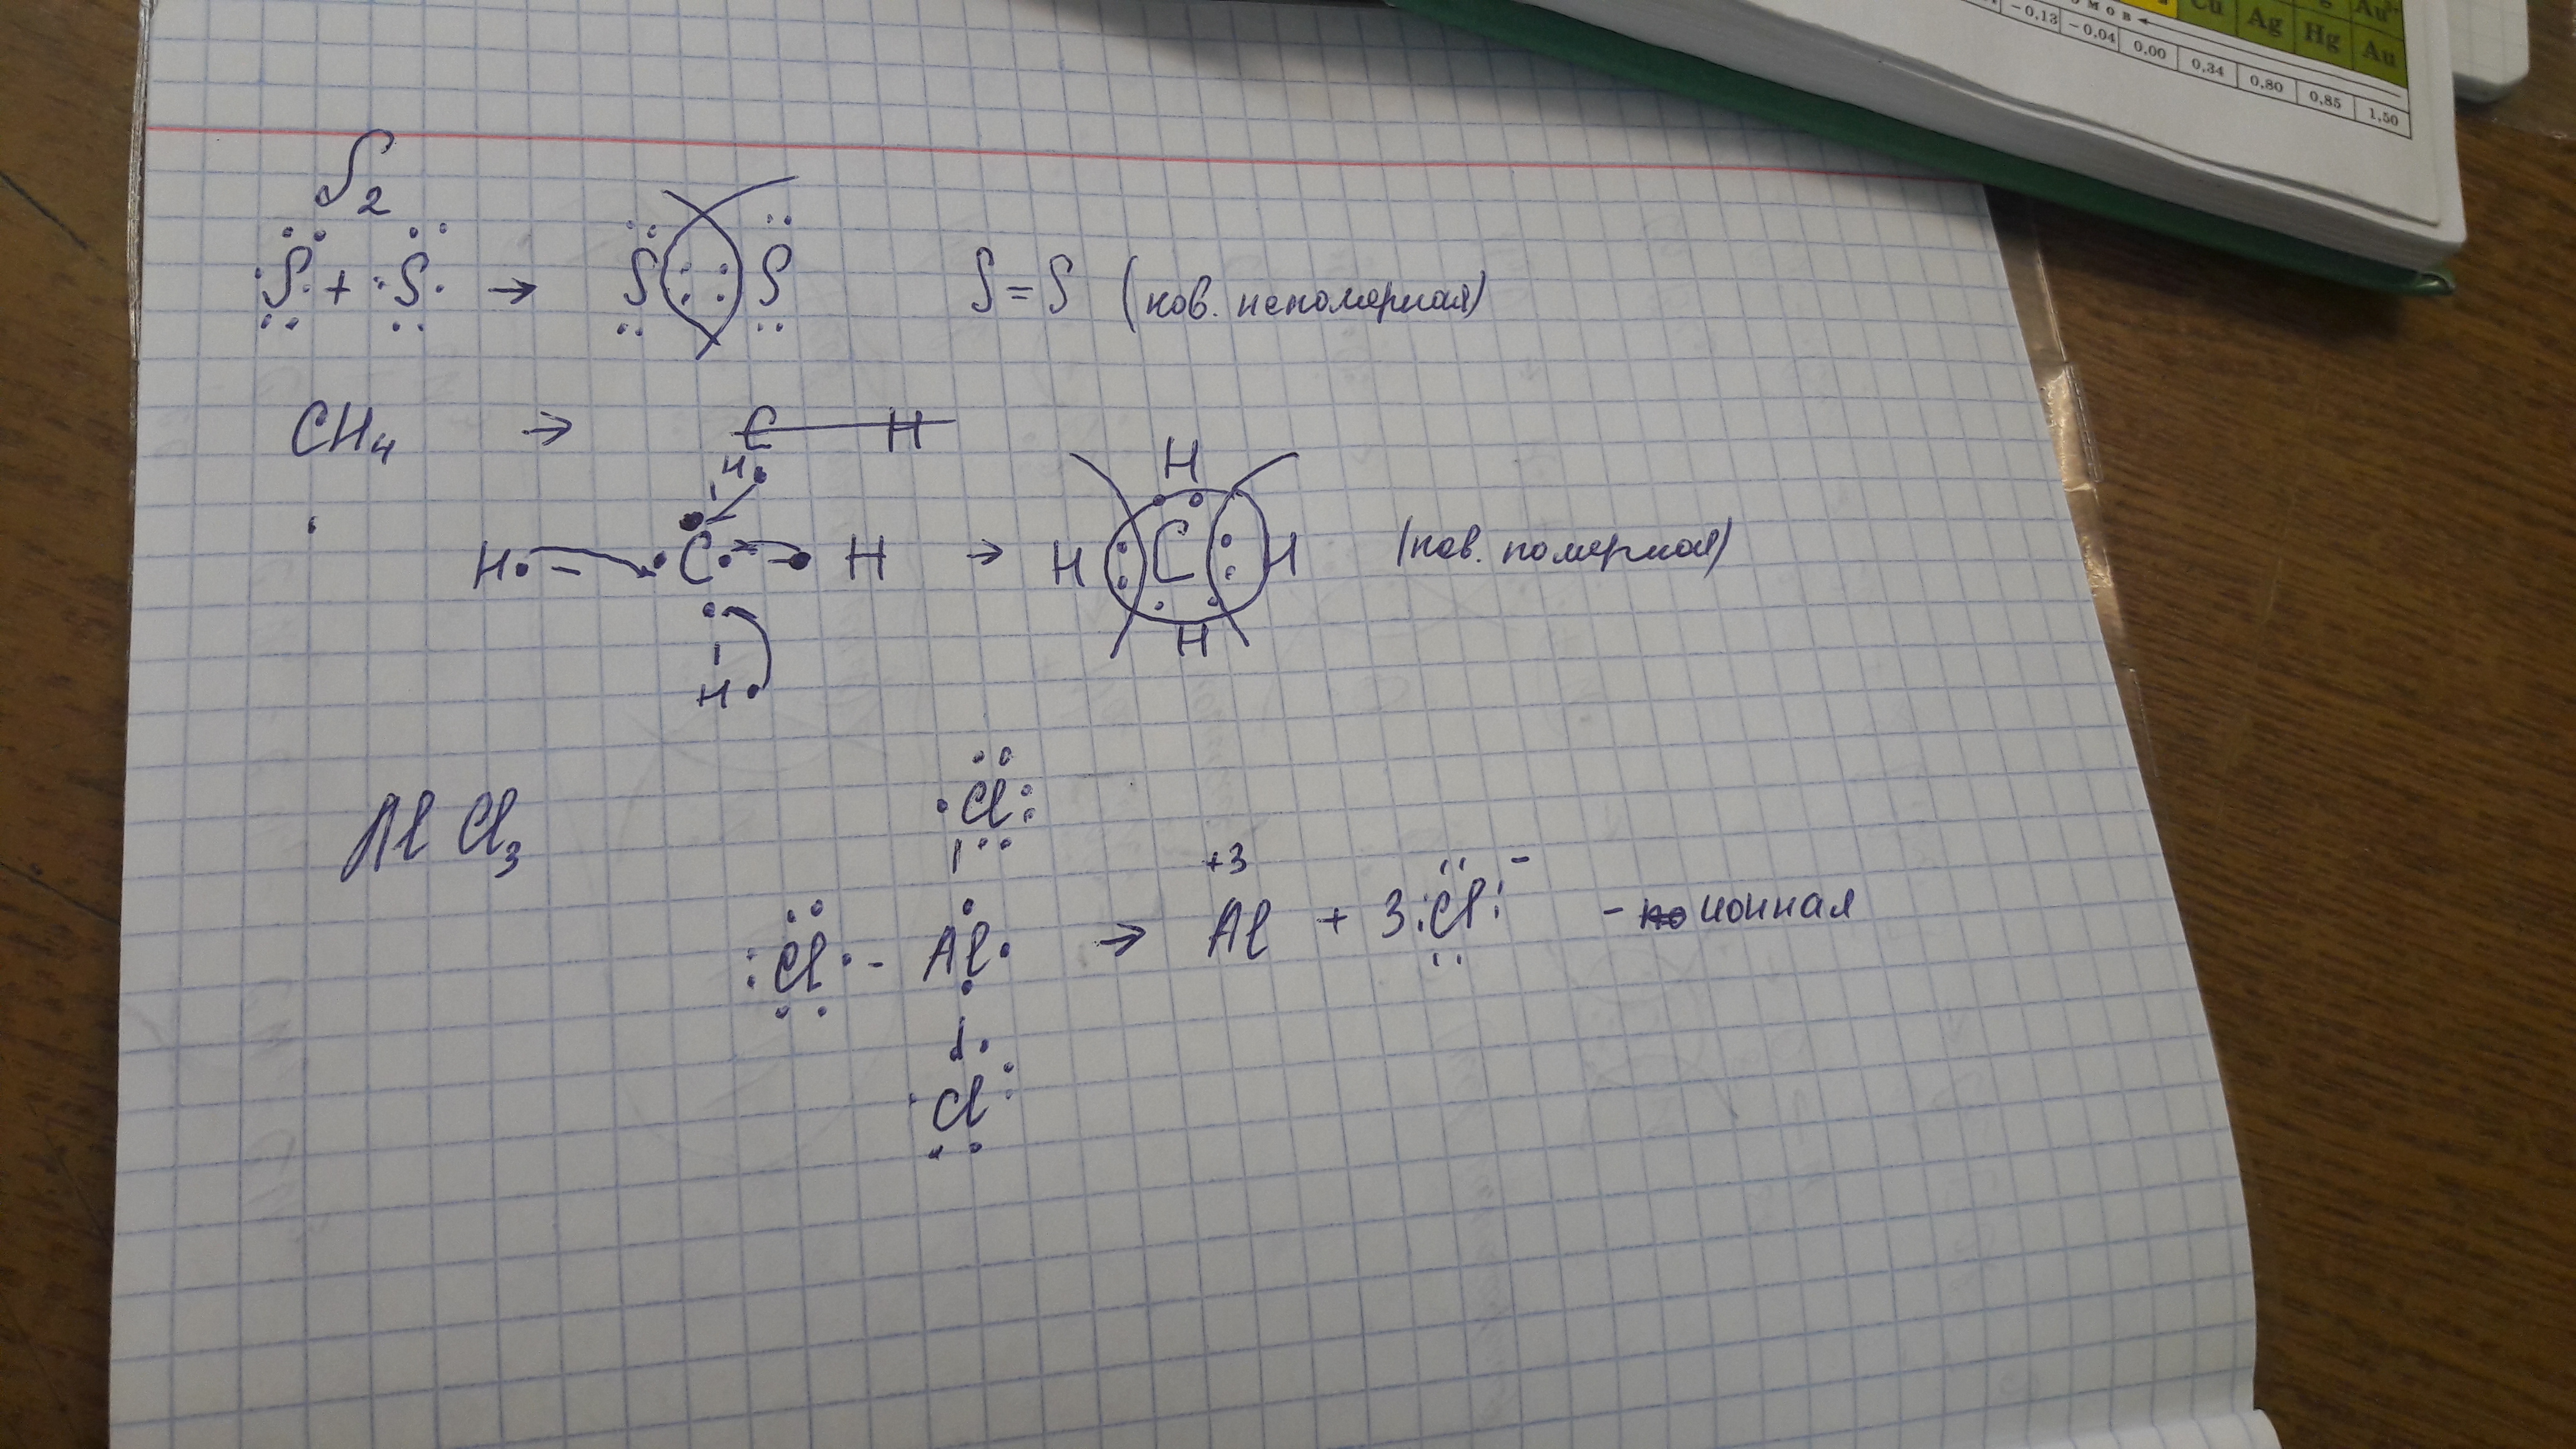 Cu Ag Hg Au
-0,13 -0,04 0,00 0,34 0,80 0,85 1,50
S₂
S + S → S S S=S (ков. неполярная)
CH₄ → C H
H
H C H → H C H (ков. полярная)
H
H
H
AlCl₃
Cl
Cl - Al → Al⁺³ + 3Cl⁻ - ионная
Cl